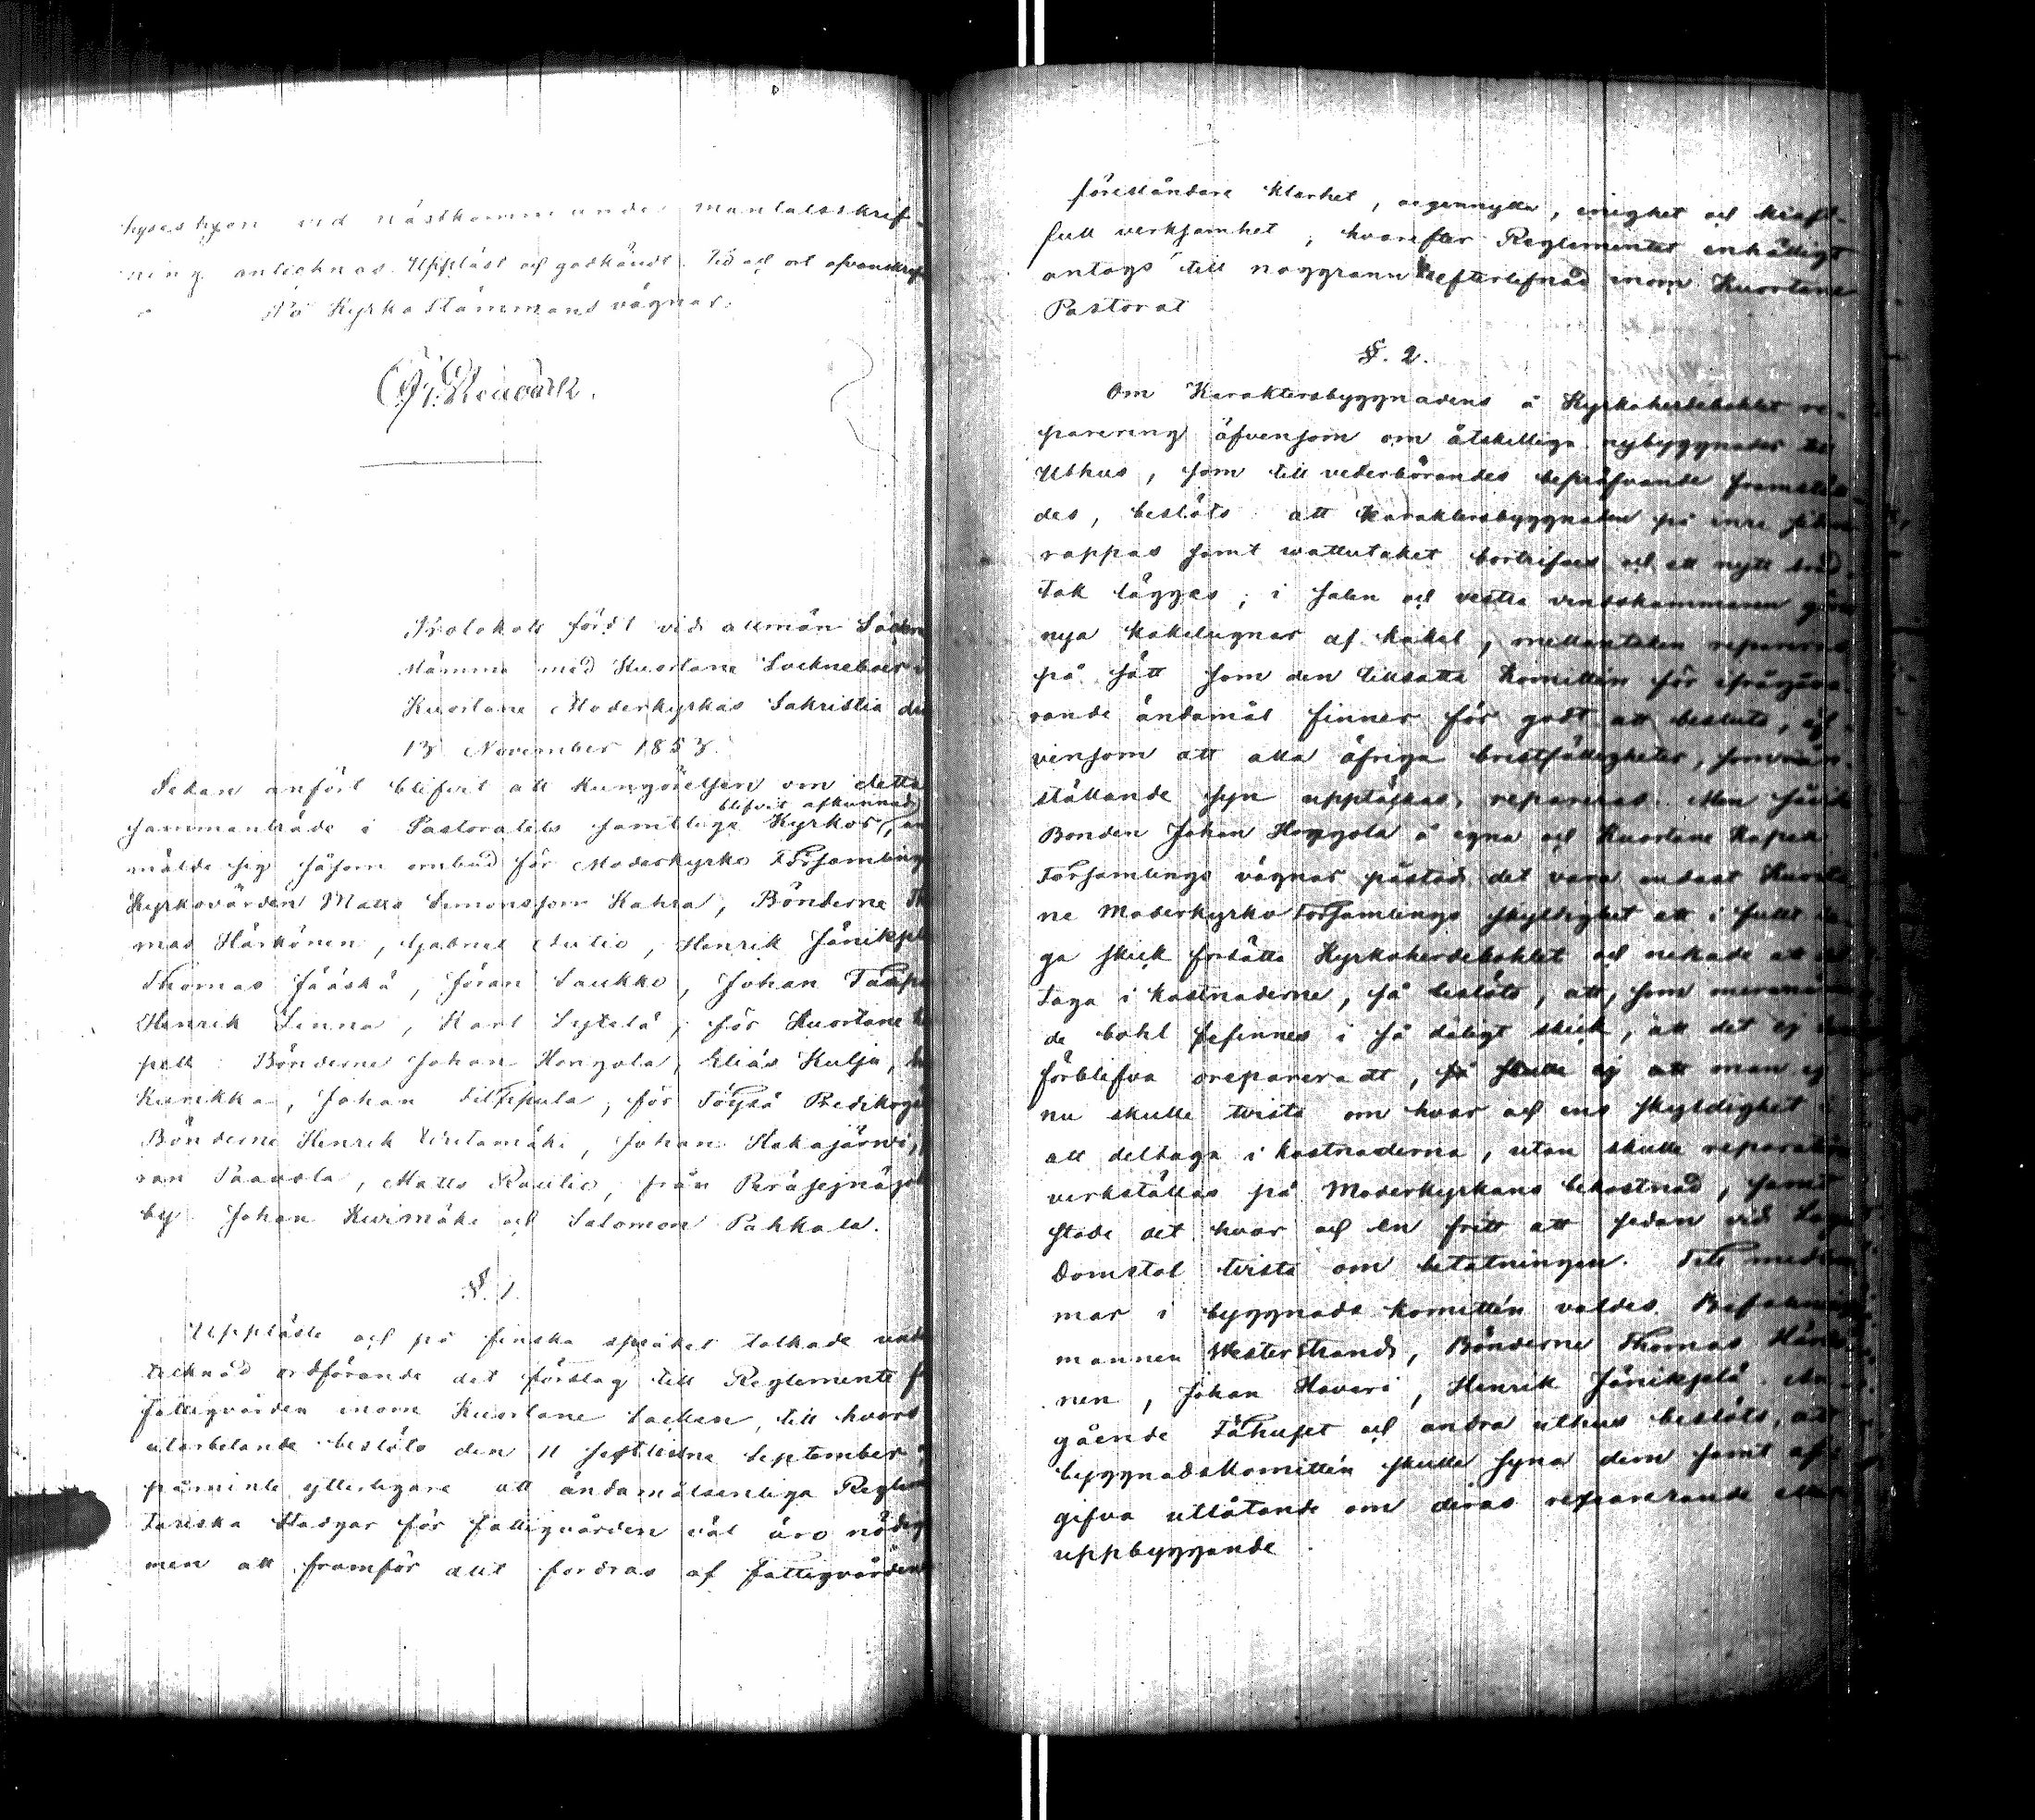 vid nästkommande mantalsskrif-
ning antecknas. Uppläst och godkändt. Tid och ort ofvanskrifne
På Kyrko Stämmans vägnar:
Protokoll fördt vid allmän Sockne
stämma med Kuortane Sockneboer i
Kuortane Moderkyrkas Sakristia den
13 November 1853.
Sedan anfört blifvit att Kungörelsen om detta
blifvit afkunnad
sammanträde i Pastoratets samtlige Kyrkor, an
mälde sig såsom ombud för Moderkyrko Församling
Kyrkovärden Matts Simonsson Kahra, Bönderne Th
mas Härkönen, Gabriel Autio, Henrik Jänikjpä
Thomas Jääskä, Jöran Saukko, Johan
Henrik Linna, Karl Sytelä; för Kuortane Ka
pell: Bönderne Johan Hongola, Elias Kulju,
Kurikka, Johan Filppula; för Töysä Predikoge
Bönderne Henrik Viitamäki, Johan Hakajärvi,
ran Paavola, Matts Rautio, från Peräsejnäjoki
by Johan Kurimäki och Salomon Pahkala.
§. 1.
Uppläste och på finska språket tolkade unde
tecknad ordförande det förslag till Reglemente fö
Fattigvården inom Kuortane Socken, till hvars
utarbetande beslöts den 11 sistlidne September,
påminte ytterligare att ändamålsenliga Reglem
tariska stadgar för fattigvården väl äro nödig
men att framför allt fordras af fattigvårdens
föreståndare klarhet, oegennytta, enighet och kraft-
full verksamhet; hvarefter Reglementet enhälligt
antogs till noggrann efterlefnad inom Kuortane
Pastorat
§. 2.
Om Karaktersbyggnadens å Kyrkoherdebohlet re-
parering äfvensom om åtskilliga nybyggnader till
Uthus, som till vederbörandes bepröfvande framstäl-
des, beslöts att Karaktersbyggnaden på inre sidan
rappas samt wattutaket bortrifves och ett nytt bräd-
tak lägges; i salen och vestra vindskammaren göres
nya kakelugnar af kakel, mellantaken repareras
på sätt som den tillsatta Komittén för ifrågava-
rande ändamål finner för godt att besluta, äf-
vensom att alla öfriga bristfälligheter, som vid an-
ställande syn upptäckas, repareras. Men som
Bonden Johan Hongola å egna och Kuortane Kapell
Församlings vägnar påstod det vara endast Kuorta
ne Moderkyrko Församlings skyldighet att i fullt la-
ga skick försätta Kyrkoherdebohlet och nekade att del
taga i kostnaderne, så beslöts, att, som meranämn
de bohl befinnes i så dåligt skick, att det ej kan
förblifva orepareradt, man ej
nu skulle tvista om hvar och ens skyldighet
att deltaga i kostnaderna, utan skulle reparation
verkställas på Moderkyrkans bekostnad, samt
stode det hvar och en fritt att sedan vid Laga
Domstol tvista om betalningen. Till medlem
mar i byggnads komittén valdes Befaknings
mannen Westerstrand, Bönderne Thomas Härkö
nen, Johan Havari, Henrik Jänikjpä. An
gående Fähuset och andra uthus beslöts, att
byggnadskomittén skulle syna dem samt af-
gifva utlåtande om deras reparerande eller
uppbyggande